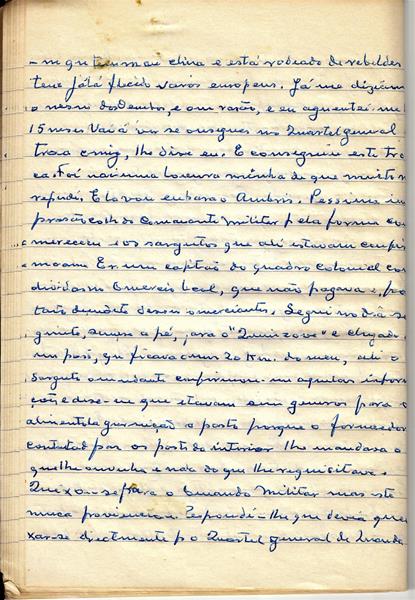 me que tem mau clima e está rodeado de rebeldes
tem já lá ficado varios europeus. Já me diziam
o mesmo dos Dembos, e com rasão, e eu aguentei-me
15 meses Vá lá ver se consegues no Quartel general
troca comigo, lhe disse eu. E conseguiu esta tro
ca. Foi mais uma loucura minha de que muito m
rependi. E lá vou embarcado Ambriz. Pessima im
pressão colhi do Comandante Militar pela forma co
me recebeu e os sargentos que ali estavam confir
maram. Era um capitão do quadro colonial co
dividas no Comercio local, que não pagava e, po
tanto dependente desses comerciantes. Segui no dia se
guinte, sempre a pé, para o "Quinzove" e chegado
um posto, que ficava a uns 20 Km. do meu, ali o
sargento comandante confirmou-me aquelas infor
ções e disse-me que estavam sem generos para
alimentar a guarnição do posto porque o fornecedor
contratado por os postos do interior lhe mandava o
que lhe convinha e não do que lhe requisitava.
Queixou-se para o Comando Militar mas este
nunca providenciou. Respondi-lhe que devia quei
xar-se directamente p.o Quartel general de Luanda